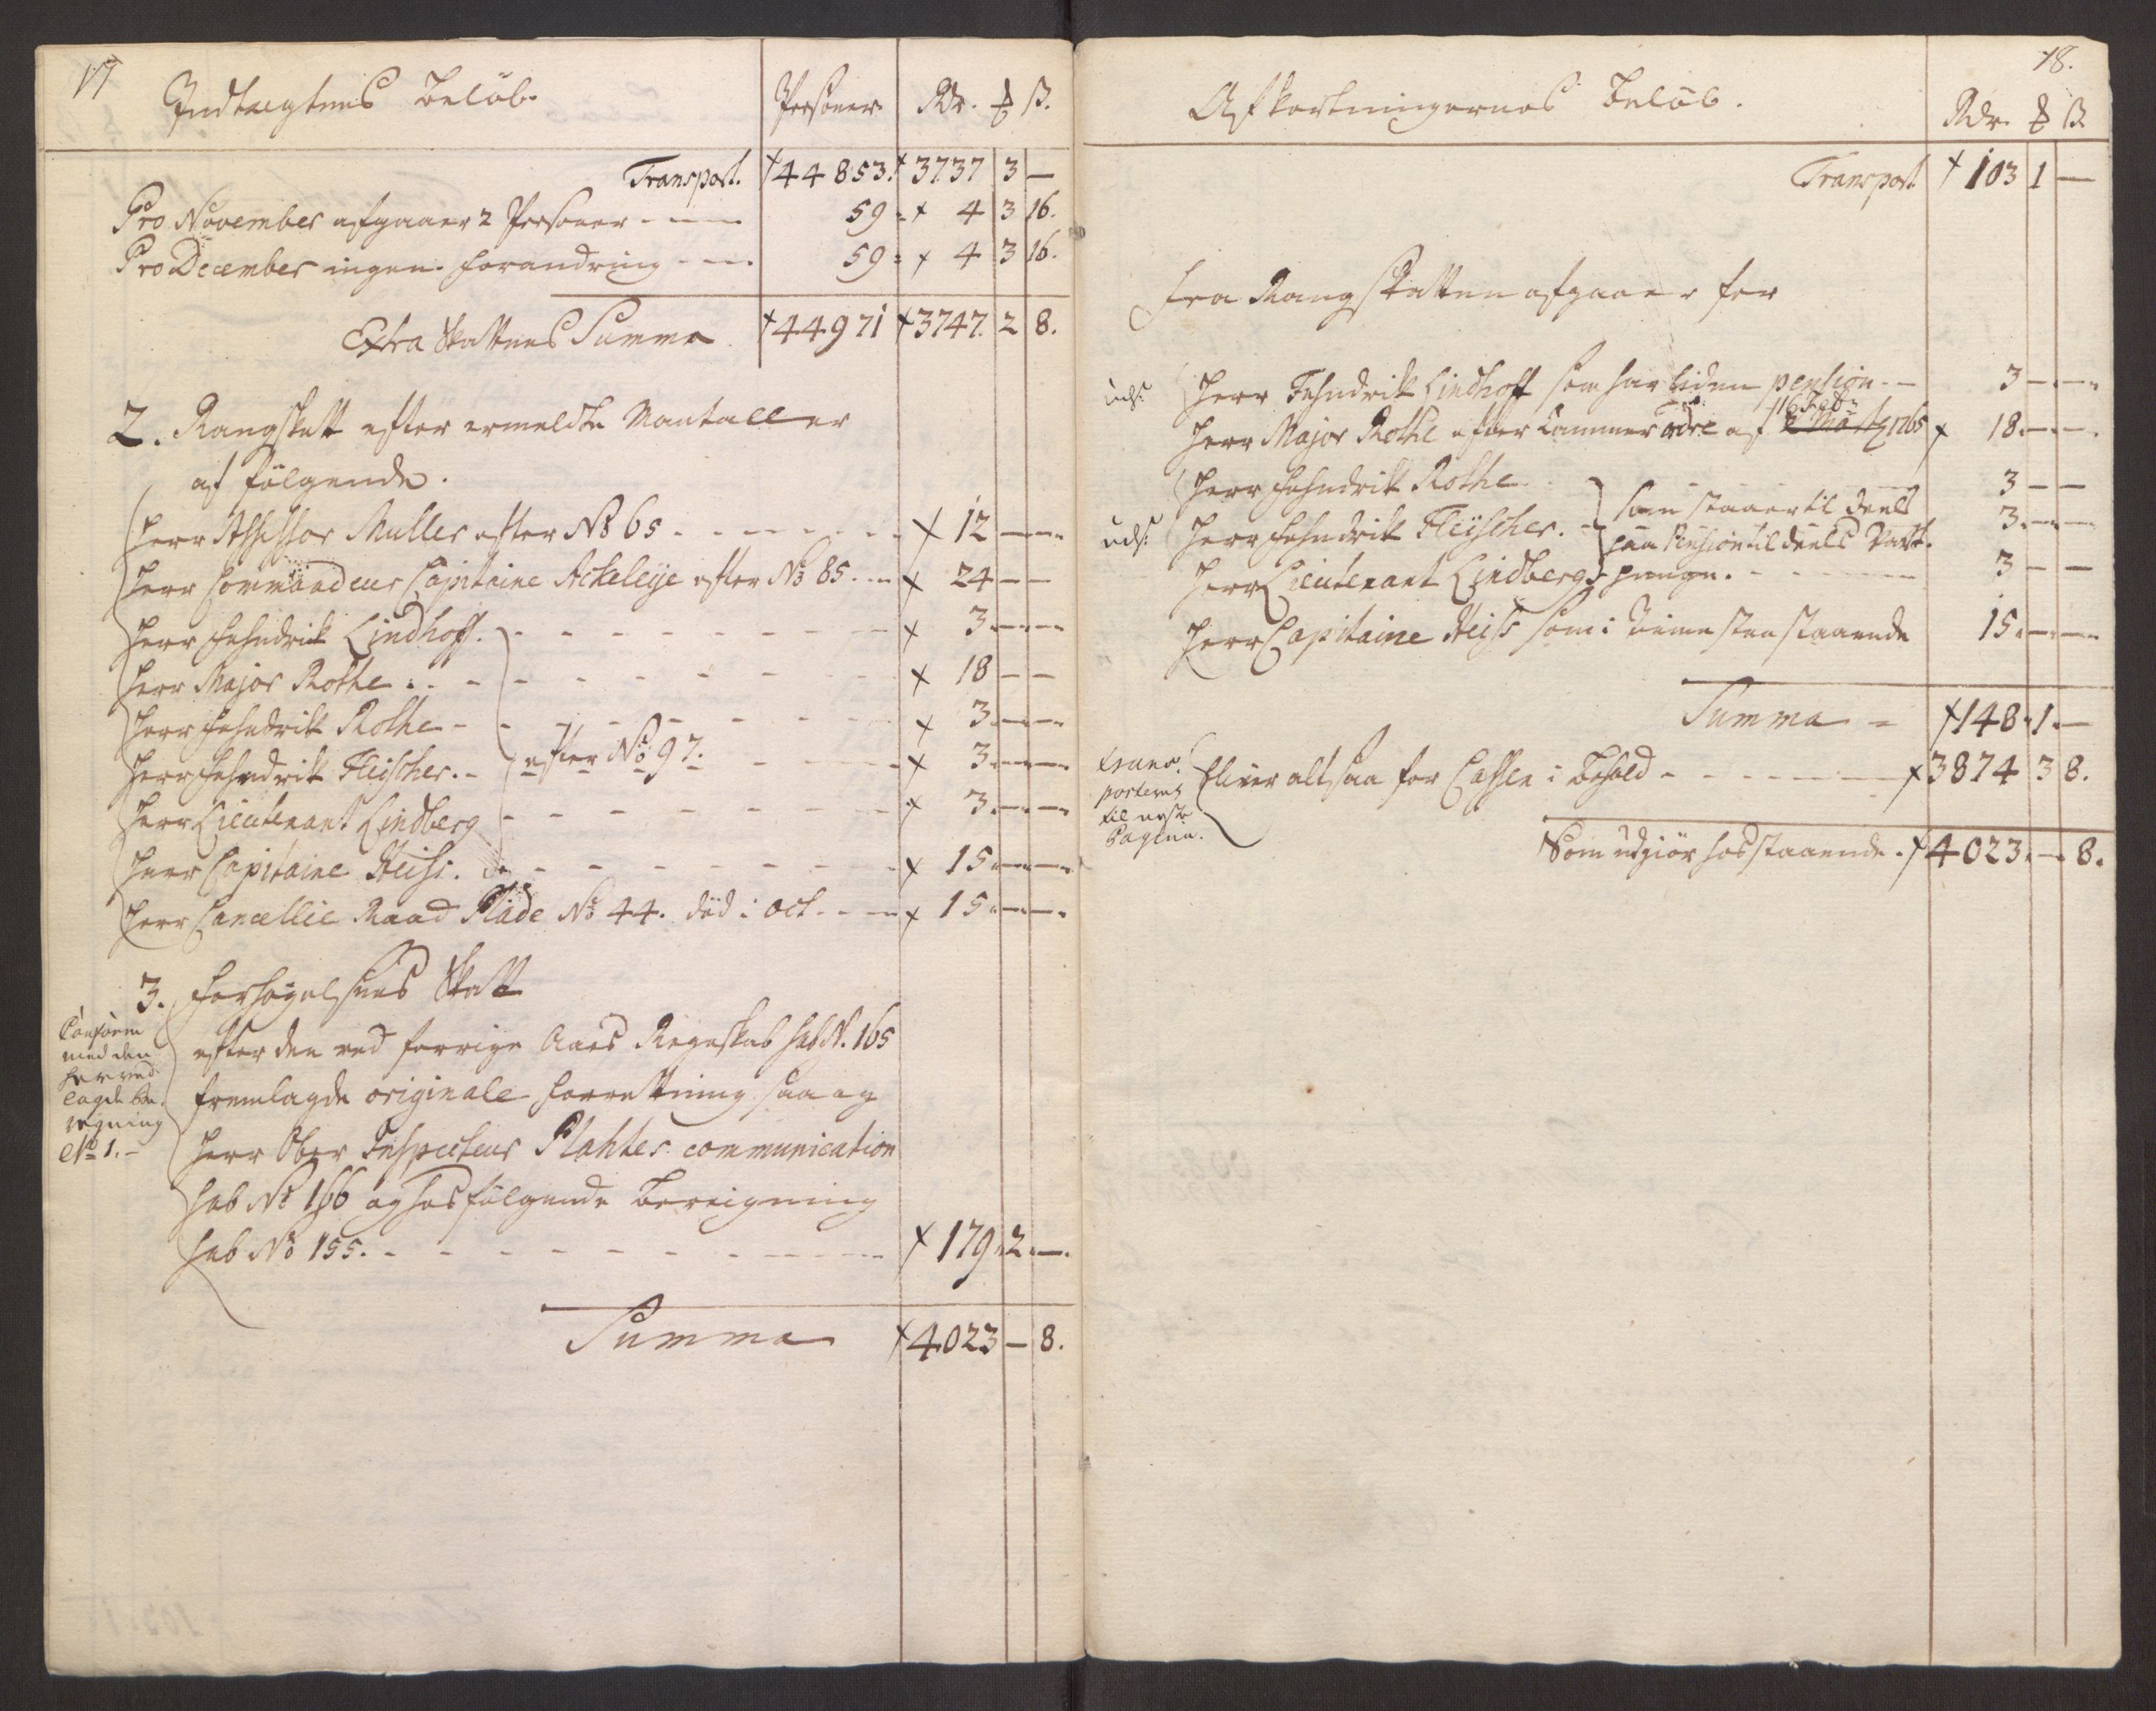 17
Indtægternes Beløb.
Persohner Rdr. ℔ ß.
Transport. 44853. 3737 3 —
Pro November afgaaer 2 Persohner - - - 59 = 4 3 16.
Pro December ingen forandring - - - 59 = 4 3 16.
Extra Skattens Summa 44971 3747. 2 8.
2. Rangskatt efter ermeldte Mantaller
af følgende.
Herr Assessor Muller efter No 65 - - - 12 — —
Herr Commandeur Capitaine Ackeleije efter No 85. - - 24 — —
Herr Fehndrik Lindhoff. - - - 3 — —
Herr Major Rothe - - - 18 — —
Herr Fehndrik Rothe - - - 3 — —
Herr Fehndrik Fleischer. - efter No 97. - - - 3 — —
Herr Lieutenant Lindberg - - - 3 — —
Herr Capitaine Heiss. - - - 15 — —
Herr Cancellie Raad Plade No 44. død i Oct. - - - 15 — —
3. Forhøyelsens Skatt
efter den ved forrige Aars Regnskab sub N. 165
fremlagde originale forretning saa og
Herr Ober Inspecteur Plahtes communication
sub No 166 og hosfølgende Beregning
sub No 155. - - - 179. 2. —
Conform
med den
herved
lagde be-
regning
No 1. -
Summa 4023 — 8.
18.
Afkortningernes Beløb.
Rdr ℔ ß
Transport 103 1 —
Fra Rangskatten afgaaer for
uds. Herr Fehndrik Lindhoff som har liden pension - - 3 — —
Herr Major Rothe efter Cammer Ordre af 16 Feb. 1765 18. — —
Herr Fehndrik Rothe 3 — —
uds. Herr Fehndrik Fleischer. - som staaer til deels 3. — —
Herr Lieutenant Lindberg paa Pension til deels Vart-
penge. - - - 3 — —
Herr Capitaine Heiss som i Tienesten staaende 15. — —
Summa - 148. 1. —
trans-
porteres
til neste
Pagina.
bliver altsaa for Cassen i behold - - - 3874 3 8.
Som udgiør hosstaaende. 4023. — 8.